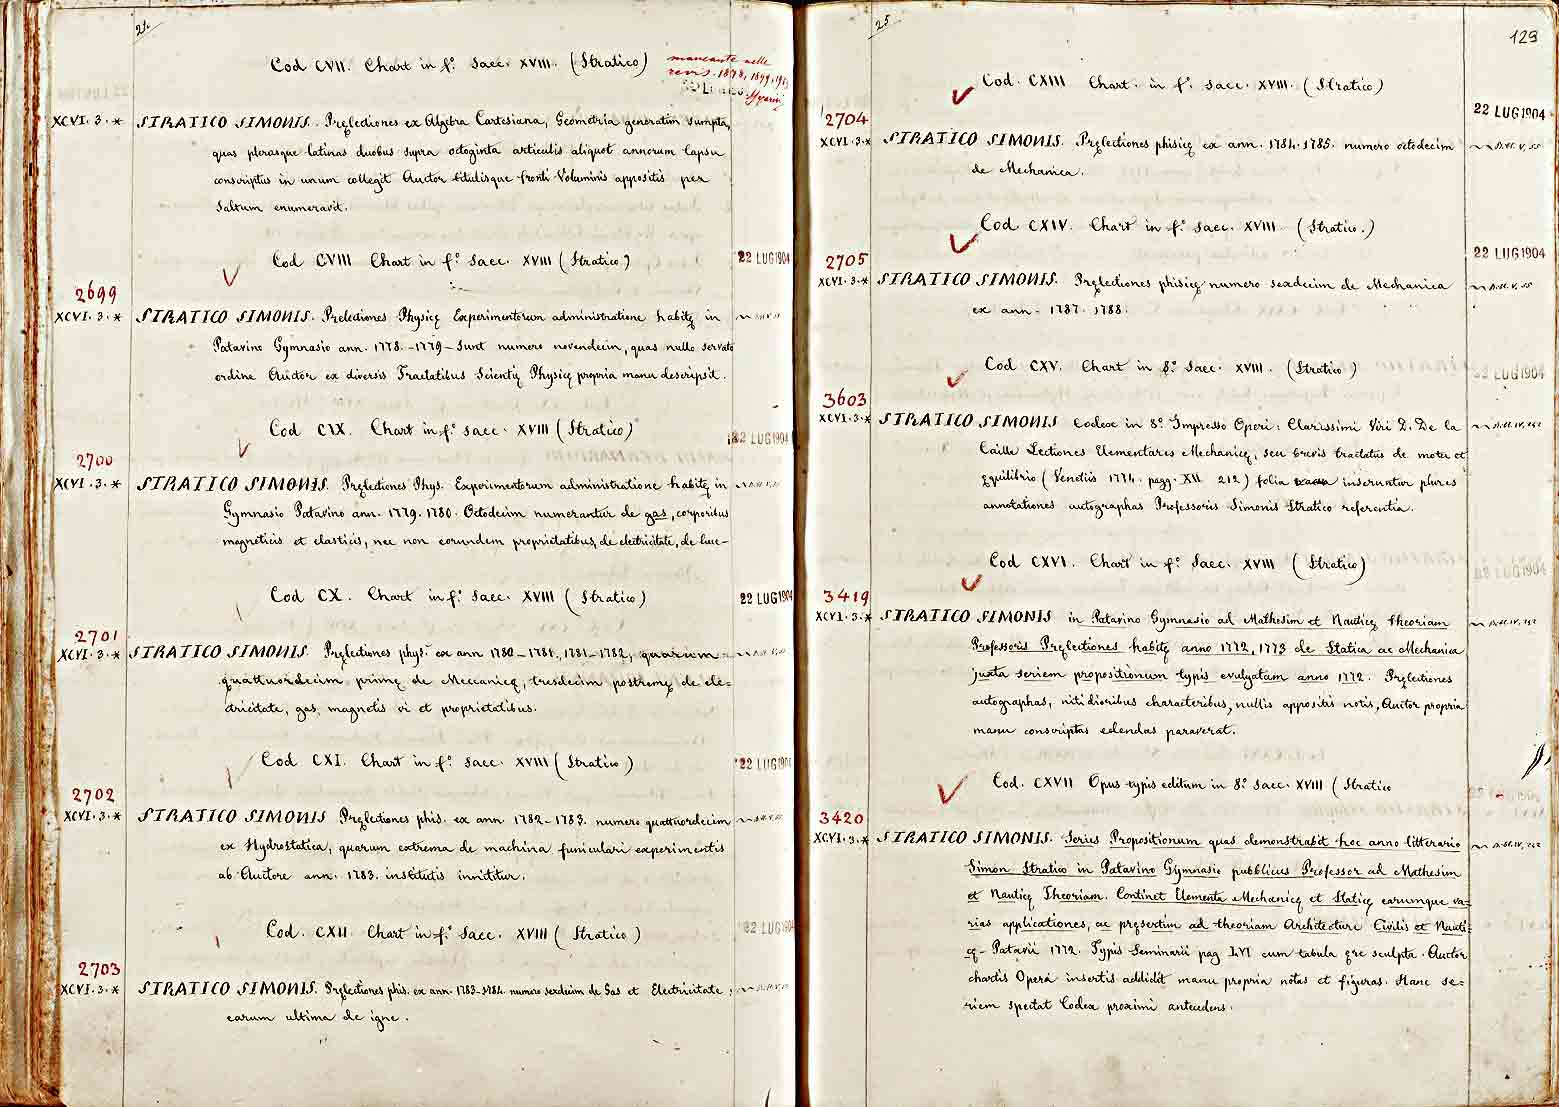 24.
Cod CVII. Chart in f.º Saec. XVIII. (Stratico)
mancante nelle
revis. 1878, 1899, 19
XCVI. 3. * STRATICO SIMONIS. Pręlectiones ex Algebra Cartesiana, Geometria generatim sumpta,
quas plerasque latinas duobus supra octoginta articulis aliquot annorum lapsu
conscriptas in unum collegit Auctor titulisque fronti Voluminis appositis per
saltum enumeravit.
Cod CVIII Chart in f.º Saec. XVIII (Stratico)
22 LUG 1904
2699
XCVI. 3. * STRATICO SIMONIS. Prelectiones Physicę Experimentorum administratione habitę in
Patavino Gymnasio ann. 1778.-1779- Sunt numero novendecim, quas nullo servato
ordine Auctor ex diversis Tractatibus Scientię Physicę propria manu descripsit.
Cod CIX. Chart in f.º Saec. XVIII (Stratico)
22 LUG 1904
2700
XCVI. 3. * STRATICO SIMONIS. Pręlectiones Phys. Experimentorum administratione habitę in
Gymnasio Patavino ann. 1779. 1780. Octodecim numerantur de gas, corporibus
magneticis et elasticis, nec non eorundem proprietatibus, de electricitate, de luce-
Cod CX. Chart in f.º Saec. XVIII (Stratico)
22 LUG 1904
2701
XCVI. 3. * STRATICO SIMONIS. Pręlectiones phys. ex ann 1780-1781, 1781-1782, quarum
quattuordecim primę de Meccanicę, tresdecim postremę de ele=
ctricitate, gas, magnetis vi et proprietatibus.
Cod CXI. Chart in f.º Saec. XVIII (Stratico)
22 LUG 1904
2702
XCVI. 3. * STRATICO SIMONIS Pręlectiones phis. ex ann 1782-1783. numero quattuordecim
ex Hydrostatica, quarum extrema de machina funiculari experimentis
ab Auctore ann. 1783. institutis innititur.
Cod. CXII Chart in f.º Saec. XVIII (Stratico)
22 LUG 1904
2703
XCVI. 3. * STRATICO SIMONIS. Pręlectiones phis. ex ann. 1783-1784. numero sexdecim de Gas et Electricitate;
earum ultima de igne.
25
129
Cod. CXIII Chart. in f.º Saec. XVIII. (Stratico)
22 LUG 1904
2704
XCVI. 3. * STRATICO SIMONIS. Pręlectiones phisicę ex ann. 1784. 1785. numero octodecim
de Mechanica.
Cod CXIV. Chart. in f.º Saec. XVIII (Stratico.)
22 LUG 1904
2705
XCVI. 3. * STRATICO SIMONIS. Pręlectiones phisicę numero sexdecim de Mechanica
ex ann. 1787. 1788.
Cod CXV. Chart in 8.º Saec. XVIII. (Stratico)
22 LUG 1904
3603
XCVI. 3. * STRATICO SIMONIS Codex in 8.º Impresso Operi: Clarissimi Viri D. De la
Caille Lectiones Elementares Mechanicę, seu brevis tractatus de motu et
ęquilibrio (Venetiis 1774. pagg. XII 212) folia inseruntur plures
annotationes autographas Professoris Simonis Stratico referentia.
Cod CXVI. Chart in f.º Saec. XVIII (Stratico)
22 LUG 1904
3419
XCVI. 3. * STRATICO SIMONIS in Patavino Gymnasio ad Mathesim et Nauticę theoriam
Professoris Pręlectiones habitę anno 1772, 1773 de Statica ac Mechanica
juxta seriem propositionum typis evulgatam anno 1772. Pręlectiones
autographas, nitidioribus characteribus, nullis appositis notis, Auctor propria
manu conscriptas edendas paraverat.
Cod. CXVII Opus typis editum in 8.º Saec. XVIII (Stratico
3420
XCVI. 3. * STRATICO SIMONIS. Series Propositionum quas demonstrabit hoc anno litterario
Simon Stratico in Patavino Gymnasio pubblicus Professor ad Mathesim
et Nauticę Theoriam. Continet Elementa Mechanicę et Staticę earumque va=
rias applicationes, ac pręsertim ad theoriam Architecture Civilis et Nauti=
cę- Patavii 1772. Typis Seminarii pag LVI cum tabula ęre sculpta. Auctor
chartis Operi insertis addidit manu propria notas et figuras. Hanc se=
riem spectat Codex proximi antecedens.